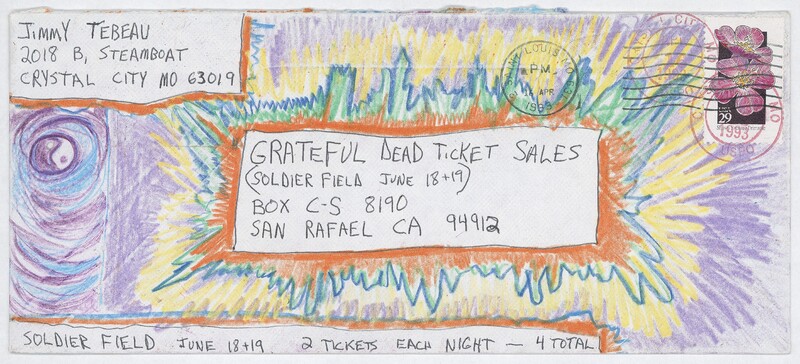 JIMMY TEBEAU
2018 B, STEAMBOAT
CRYSTAL CITY MO 63019
SAINT LOUIS MO
PM
14 APR
1993
CITY MO
1993
USPO
29
GRATEFUL DEAD TICKET SALES
(SOLDIER FIELD JUNE 18+19)
BOX C-S 8190
SAN RAFAEL CA 94912
SOLDIER FIELD JUNE 18+19 2 TICKETS EACH NIGHT – 4 TOTAL